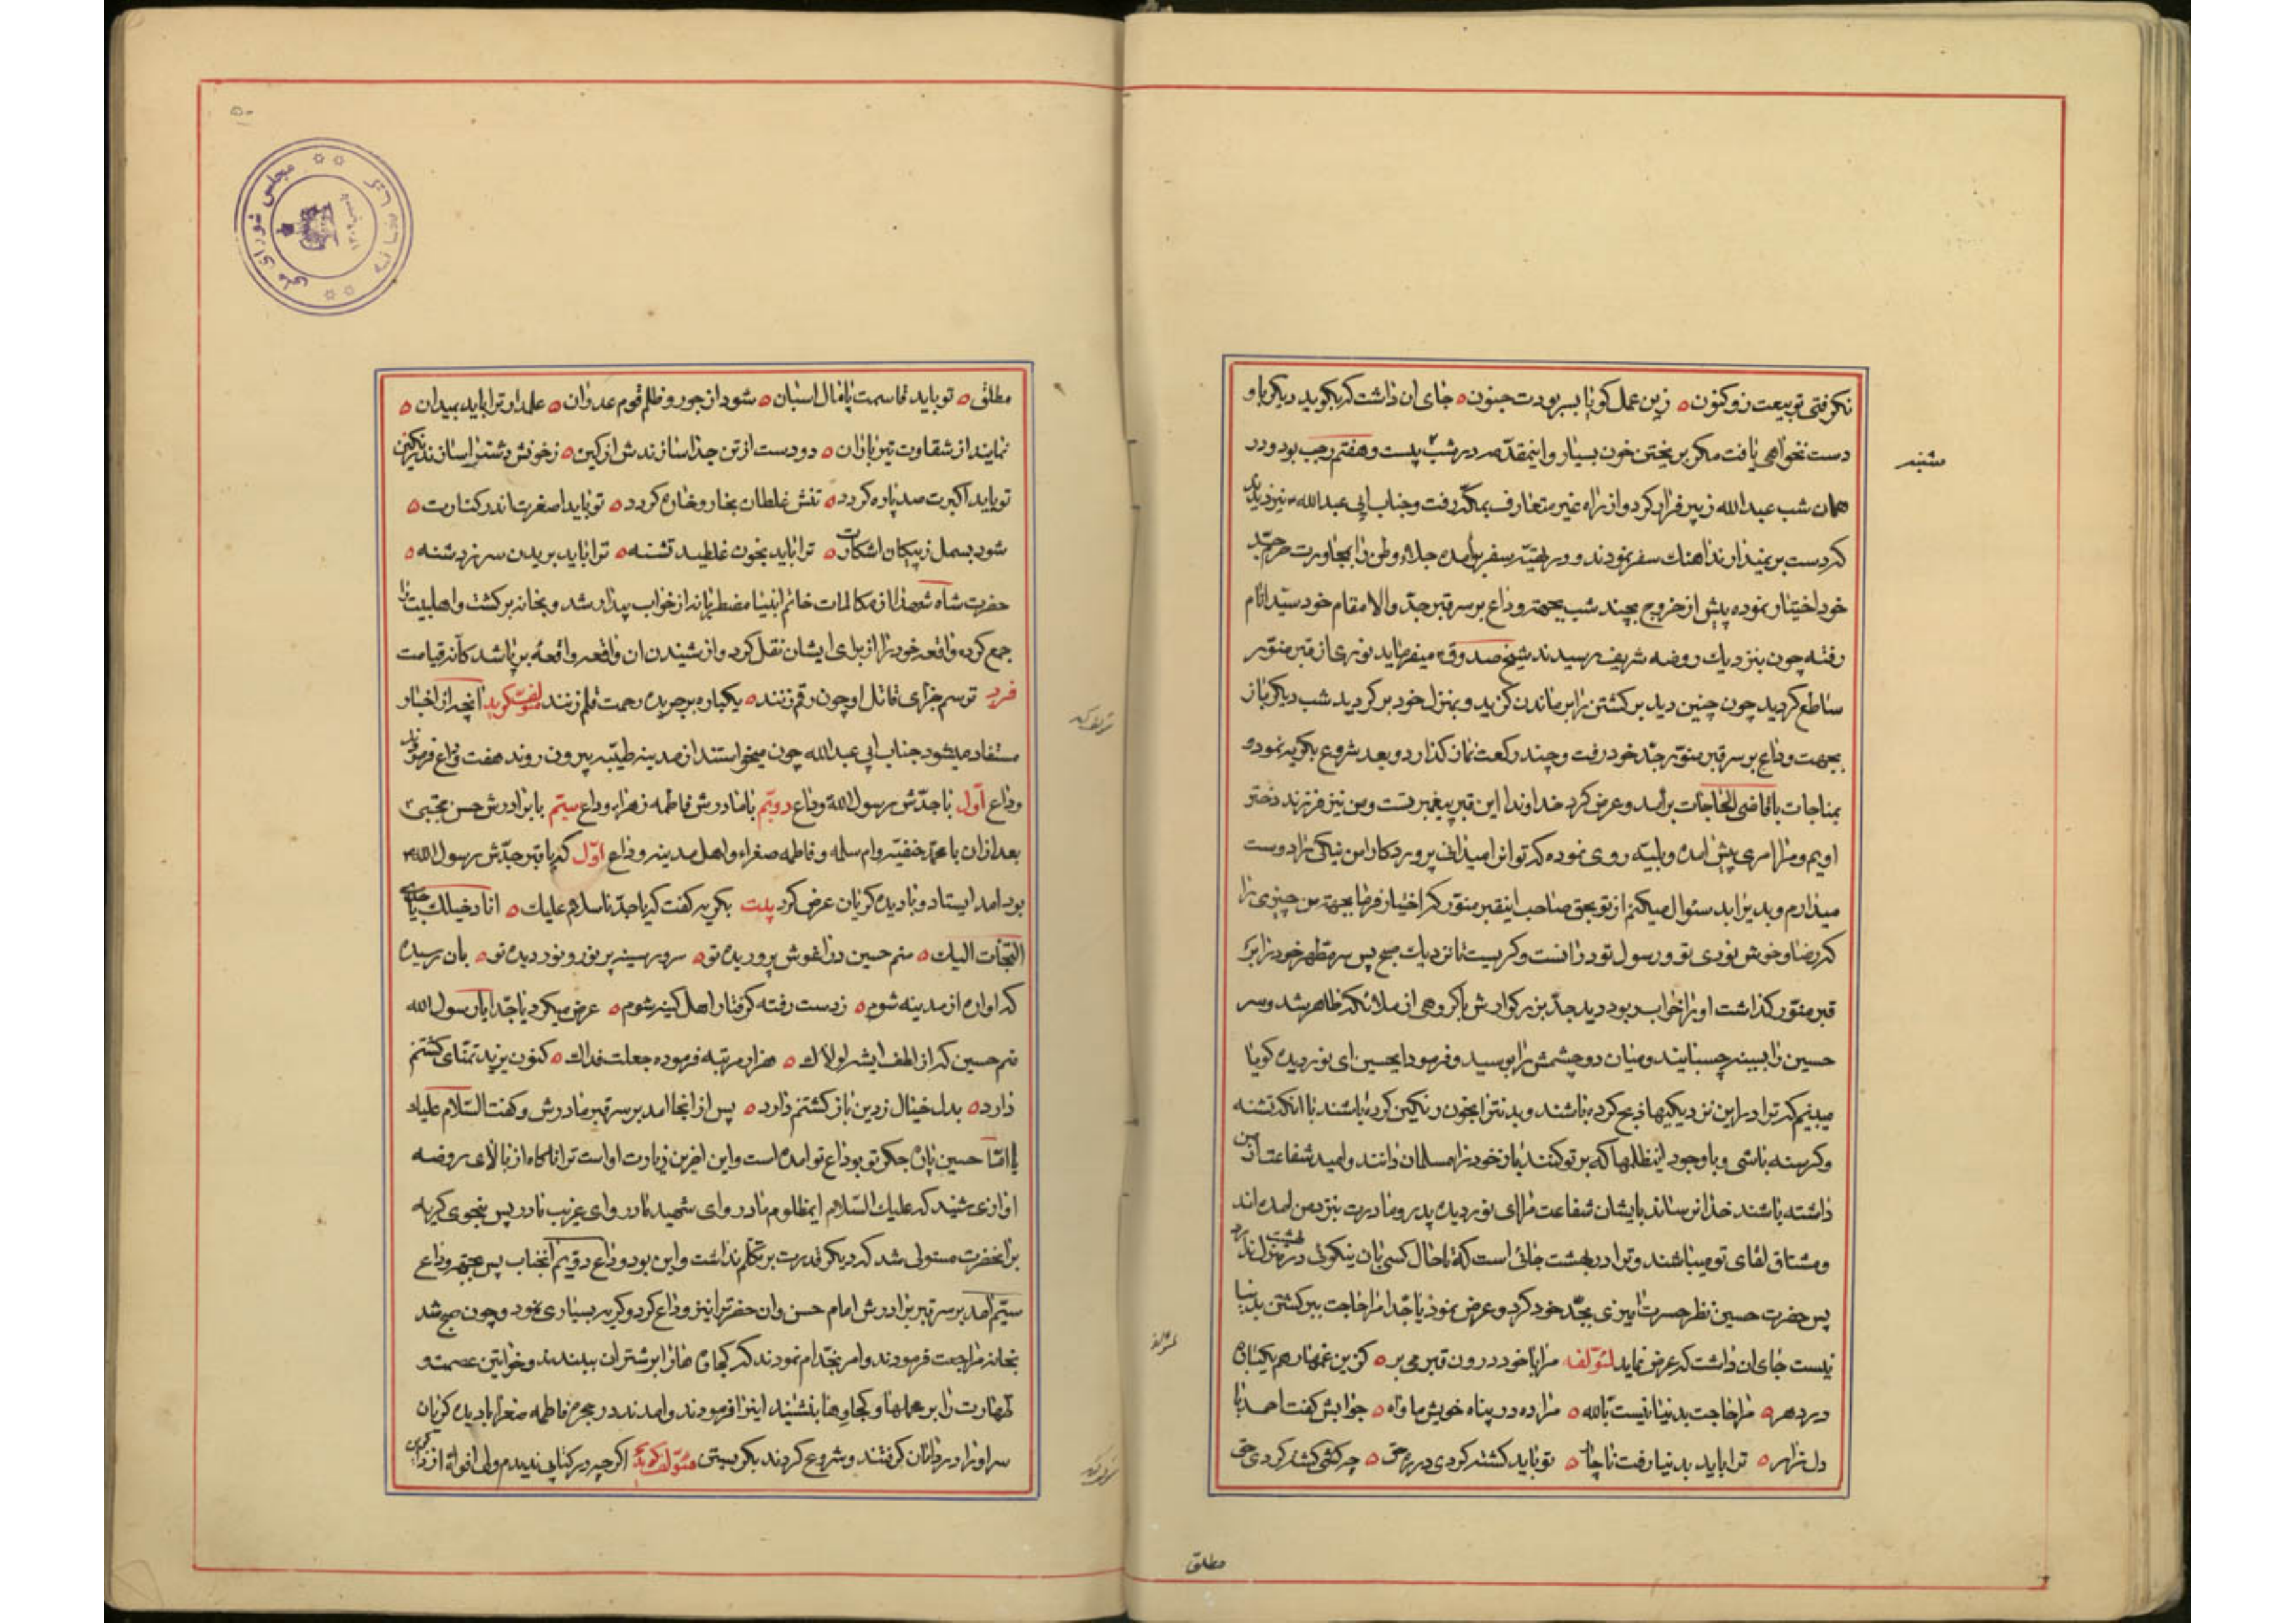 نکرفتی تو بیعت زو کنون ه زین عمل کویا بسر بودت جنون ه جای ان داشت که بکوید دیکر باو
دست نخواهی یافت مکن بریختن خون بسیار و اینمقدمه در شب بیست و هفتم رجب بود و در
شنبه
همان شب عبدالله زبیر فرار کرد و از راه غیر متعارف بمکه رفت و جناب ابی عبدالله نیز دیدند
که دست بر نمیدارند اهنك سفر نمودند و در تهیه سفر برآمده جلاء وطن را بمجاورت حرم جد
خود اختیار نموده پیش از خروج بچند شب بجهة وداع بر سر قبر جد والا مقام خود سید انام
رفته چون بنزدیك روضه شریف رسیدند شیخ صدوق میفرماید نوری از قبر منور
ساطع کردید چون چنین دید برکشتن را بر ماندن کزید و بمنزل خود برکردید شب دیکر باز
بجهت وداع بر سر قبر منور جد خود رفت و چند رکعت نماز کذارد و بعد شروع بکریه نمود و
بمناجات با قاضی الحاجات برآمد و عرض کرد خداوندا این قبر پیغمبر تست و من نیز فرزند دختر
اویم و مرا امری پیش امده و بلیه روی نموده که تو انرا میدانی پروردکارا من نیکی را دوست
میدارم و بدیرا بد سئوال میکنم از تو بحق صاحب اینقبر منور که اختیار فرما بجهة من چیزی را
که رضا و خوشنودی تو و رسول تو در انست و کریست تا نزدیك صبح پس سر مطهر خود را بر
قبر منور کذاشت او را خواب ربود دید جد بزرکوارش با کروهی از ملائکه ظاهر شد و سر
حسین را بسینه چسبانیند و میان دو چشمش را بوسید و فرمود ایحسین ای نور دیده کویا
میبینم که ترا در این نزدیکیها ذبح کرده باشند و بدنترا بخون رنکین کرده باشند با انکه تشنه
و کرسنه باشی و با وجود اینظلمها که بر تو کنند باز خود را مسلمان دانند و امید شفاعت از من
داشته باشند خدا نرساند بایشان شفاعت مرا ای نور دیده پدر و مادرت بنزد من امده اند
و مشتاق لقای تو میباشند و ترا در بهشت جائی است که تا حال کسی بان نیکوئی در بهشت منزل ندارد
پس حضرت حسین نظر حسرت امیزی بجد خود کرد و عرض نمود یا جدا مرا حاجت ببرکشتن بدنیا
نیست جای ان داشت که عرض نماید لمؤلفه مرا با خود درون قبر می بر ه کزین غمها رهم یکباره
در دهر ه مرا حاجت بدنیا نیست بالله ه مرا ده در پناه خویش ماواه ه جوابش کفت احمد با
دل زار ه ترا باید بدنیا رفت ناچار ه تو باید کشته کردی در ره حق ه چه کشتی کشته کردی حق
مطلق
مطلق ه تو باید قاسمت پامال اسبان ه شود از جور و ظلم قوم عدوان ه علمدار ترا باید بمیدان ه
نمایند از شقاوت تیر باران ه دو دست از تن جدا سازندش از کین ه زخونش دشترا سازند رنکین
تو باید اکبرت صد پاره کردد ه تنش غلطان بخار و خاره کردد ه تو باید اصغرت اندر کنارت ه
شود بسمل ز پیکان اشکارت ه ترا باید بخون غلطید تشنه ه ترا باید بریدن سر ز دشنه ه
حضرت شاه شهدا از مکالمات خاتم انبیا مضطربانه از خواب بیدار شد و بخانه برکشت و اهلبیت را
جمع کرده واقعه خود را از برای ایشان نقل کرد و از شنیدن ان واقعه واقعهٔ برپا شد کانه قیامت
فرد ترسم جزای قاتل او چون رقم زنند ه یکباره بر جریده رحمت قلم زنند مؤلف کوید انچه از اخبار
مستفاد میشود جناب ابی عبدالله چون میخواستند از مدینه طیبه بیرون روند هفت وداع فرمودند
وداع اول با جدش رسول الله وداع دویم با مادرش فاطمه زهراء وداع سیم با برادرش حسن مجتبی
بعد از ان با محمد حنفیه و ام سلمه و فاطمه صغراء و اهل مدینه وداع اول که با قبر جدش رسول الله
بود امد ایستاد و با دیده کریان عرض کرد بیت بکریه کفت که یا جد ناسلام علیك ه انا دخیلك یا جدی
التجات الیك ه منم حسین در اغوش پروریده تو ه سرور سینه پر نور و نور دیده تو ه بان رسیده
که اواره از مدینه شوم ه زدست رفته کرفتار اهل کینه شوم ه عرض میکرد یا جدا یا رسول الله
منم حسین که از لطف ایشه لولاك ه هزار مرتبه فرموده جعلت فداك ه کنون یزید تمنای کشتنم
دارد ه بدل خیال زدین باز کشتنم دارد ه پس از انجا امد بر سر قبر مادرش و کفت السلام علیك
یا اماه حسین پاره جکر تو بوداع تو امده است و این اخرین زیارت او است ترا ناکاه از بالای روضه
اوازی شنید که علیك السلام ایمظلوم مادر و ای شهید مادر و ای غریب مادر پس بنحوی کریه
بر انحضرت مستولی شد که دیکر قدرت بر تکلم نداشت و این بود وداع دویم انجناب پس بجهة وداع
سیم امد بر سر قبر برادرش امام حسن و ان حضرترا نیز وداع کرد و کریه بسیاری نمود و چون صبح شد
بخانه مراجعت فرمودند و امر بخدام نمودند که کجاوه ها را بر شتران ببندند و خواتین عصمت و
طهارت را بر محملها و کجاوها بنشینید اینرا فرمودند و امدند در حجره فاطمه صغرا با دیده کریان
سر او را در دامان کرفتند و شروع کردند بکریستن مؤلف کوید اکرچه در کتابی ندیدم ولی افواهٔ از ذاکرین
مجلس شورای ملی
کتابخانه